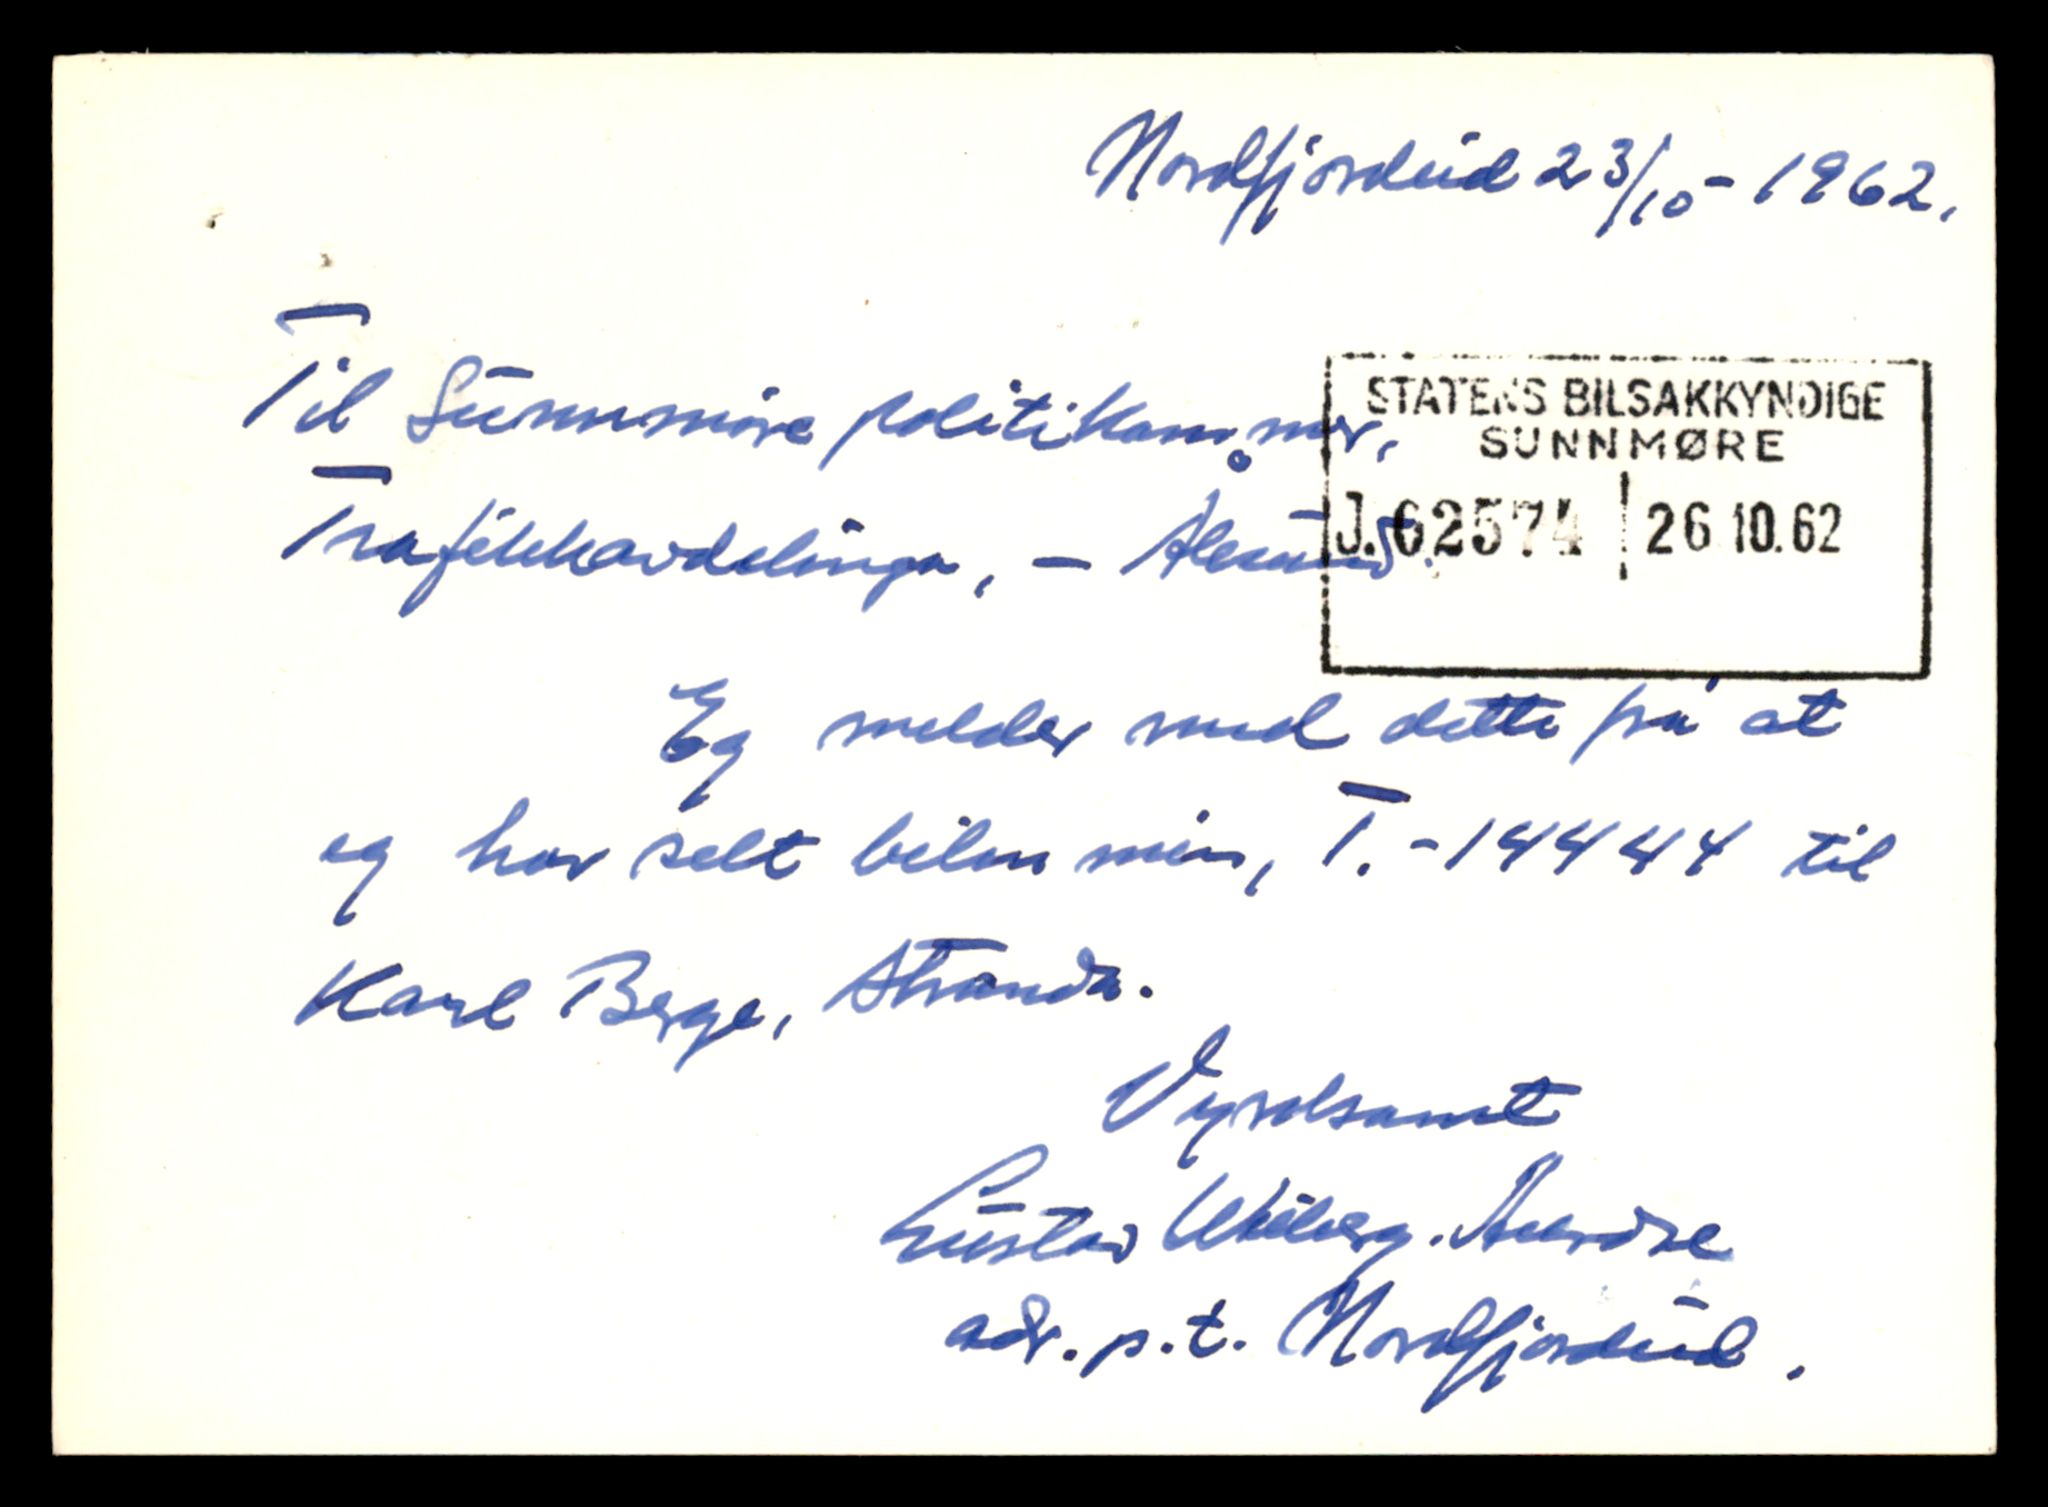 Nordfjordeid 23/10 - 1962.
Til Sunnmøre politikammer,
STATENS BILSAKKYNDIGE
SUNNMØRE
J. 62574 | 26 10. 62
Trafikkavdelinga, - Ålesund.
Eg melder med dette frå at
eg har selt bilen min, T. - 14444 til
Karl Berge, Stranda.
Vyrdsamt
Gustav
adr. p.t. Nordfjordeid.